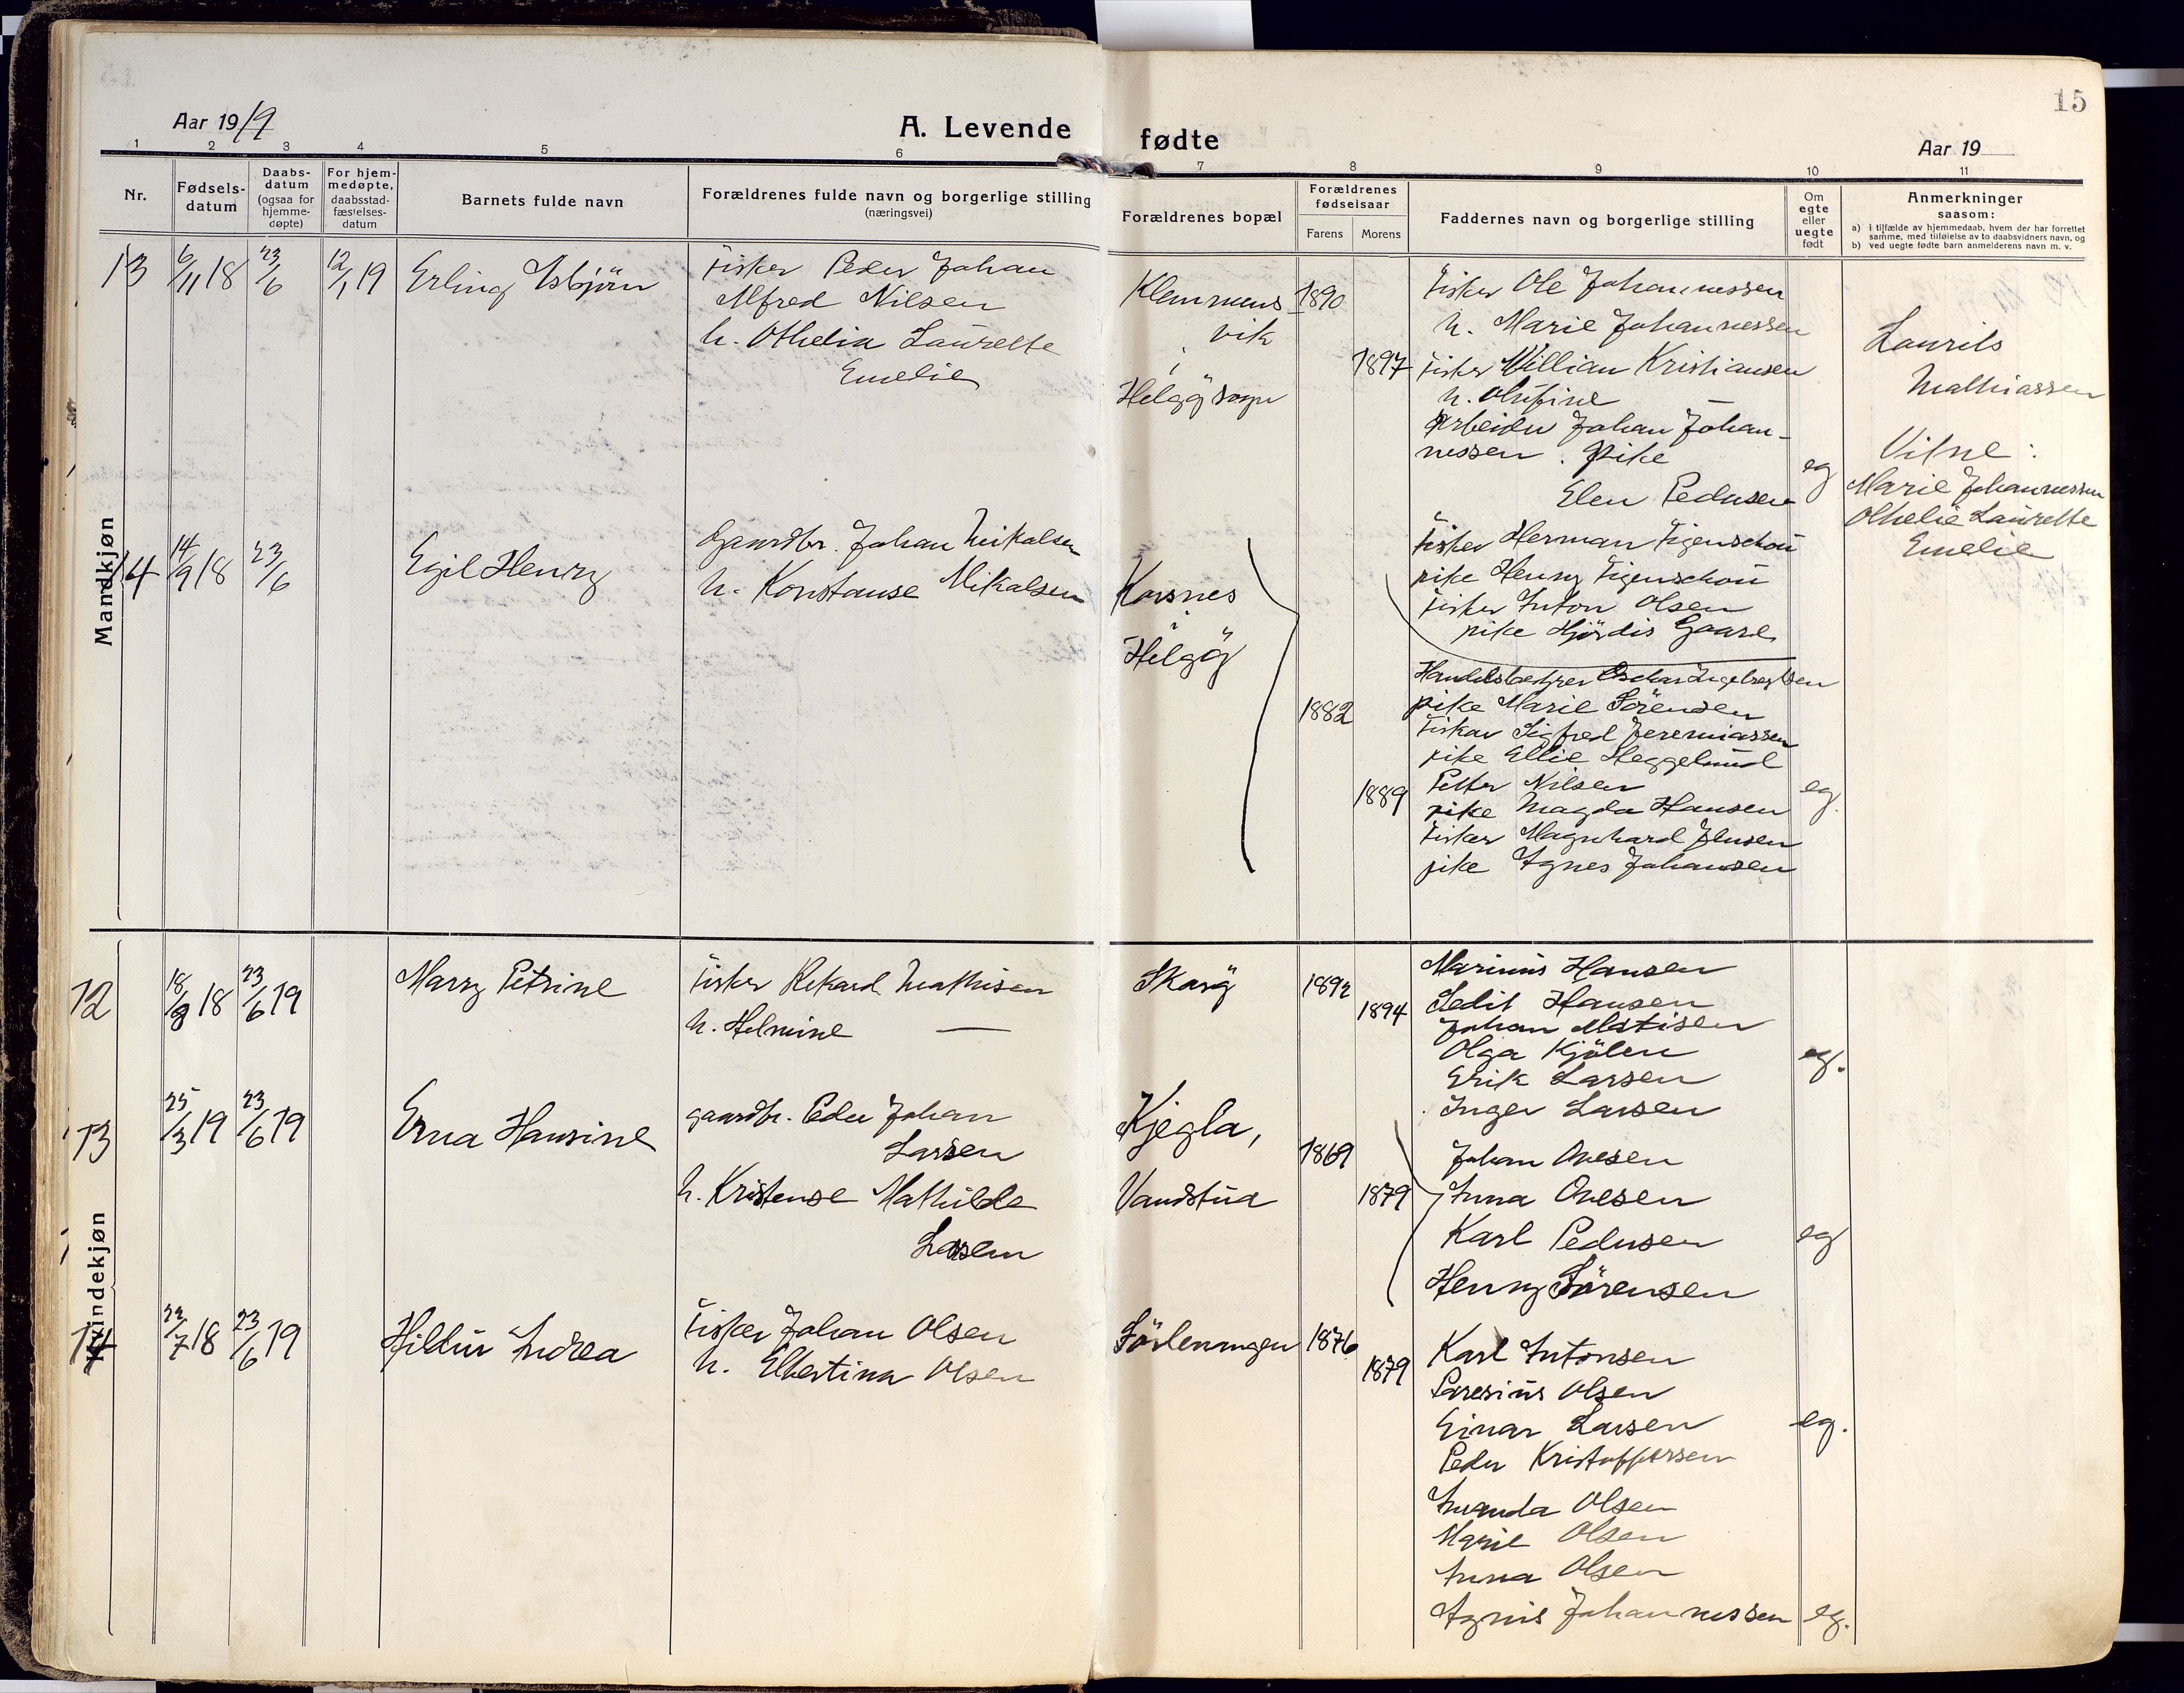 15
Aar 1919
A. Levende
fødte
Aar 19
1 2 3 4 5 6 7 8 9 10 11
Nr.
Fødsels-
datum
Daabs-
datum
(ogsaa for
hjemme-
døpte)
For hjem-
medøpte,
daabsstad-
fæstelses-
datum
Barnets fulde navn
Forældrenes fulde navn og borgerlige stilling
(næringsvei)
Forældrenes bopæl
Forældrenes
fødselsaar
Farens
Morens
Faddernes navn og borgerlige stilling
Om
egte
eller
uegte
født
Anmerkninger
saasom:
a) i tilfælde av hjemmedaab, hvem der har forrettet
samme, med tilføielse av to daabsvidners navn, og
b) ved uegte fødte barn anmelderens navn m. v.
Mandkjøn
13
6/11 18
23/6
12/1 19
Erling Asbjörn
Fisker Peder Johan
Alfred Nilsen
h. Othelia Laurette
Emelie
Klemmens
vik
i
Helgö sogn
1890
1897
Fisker Ole Johannessen
h. Marie Johannessen
Fisker Willian Kristiansen
h. Olufine —
Arbeider Johan Johan-
nessen. Pike
Elen Pedersen
eg
Laurits
Mathiassen
Vitne:
Marie Johannessen
Othelie Laurette
Emelie
14
14/9 18
23/6
Egil Henry
Gaardbr. Johan Mikalsen
h. Konstanse Mikalsen
Karsnes
Helgö
1882
1889
Fisker Herman Figenschou
pike Henny Figenschou
Fisker Anton Olsen
pike Hjördis Gaare
Handelsbetjen Oschar Ingebregtsen
pike Marie Sörensen
Fisker Sigfred Jeremiassen
pike Ellie Heggelund
Petter Nilsen
pike Magda Hansen
Fisker Magnhard Jensen
pike Agnes Johansen
eg.
Kvindekjøn
12
18/9 18
23/6 19
Marry Petrine
Fisker Rikard Mathisen
h. Helmine —
Skarö
1892
1894
Marinus Hansen
Hansen
Johan Matisen
Olga Kjölen
Erik Larsen
Inger Larsen
eg.
13
25/3 19
23/6 19
Erna Hansine
gaardbr. Peder Johan
Larsen
h. Kristense Mathilde
Larsen
Kjegla,
Vandstua
1869
1879
Johan Ovesen
Anna Ovesen
Karl Pedersen
Henny Sörensen
eg
14
22/7 18
23/6 19
Hildur Andrea
Fisker Johan Olsen
h. Elbertina Olsen
Sörlenangen
1876
1879
Karl Antonsen
Olsen
Einar Larsen
Peder Kristoffersen
Amanda Olsen
Marie Olsen
Anna Olsen
Agnis Johannessen
eg.
eg.